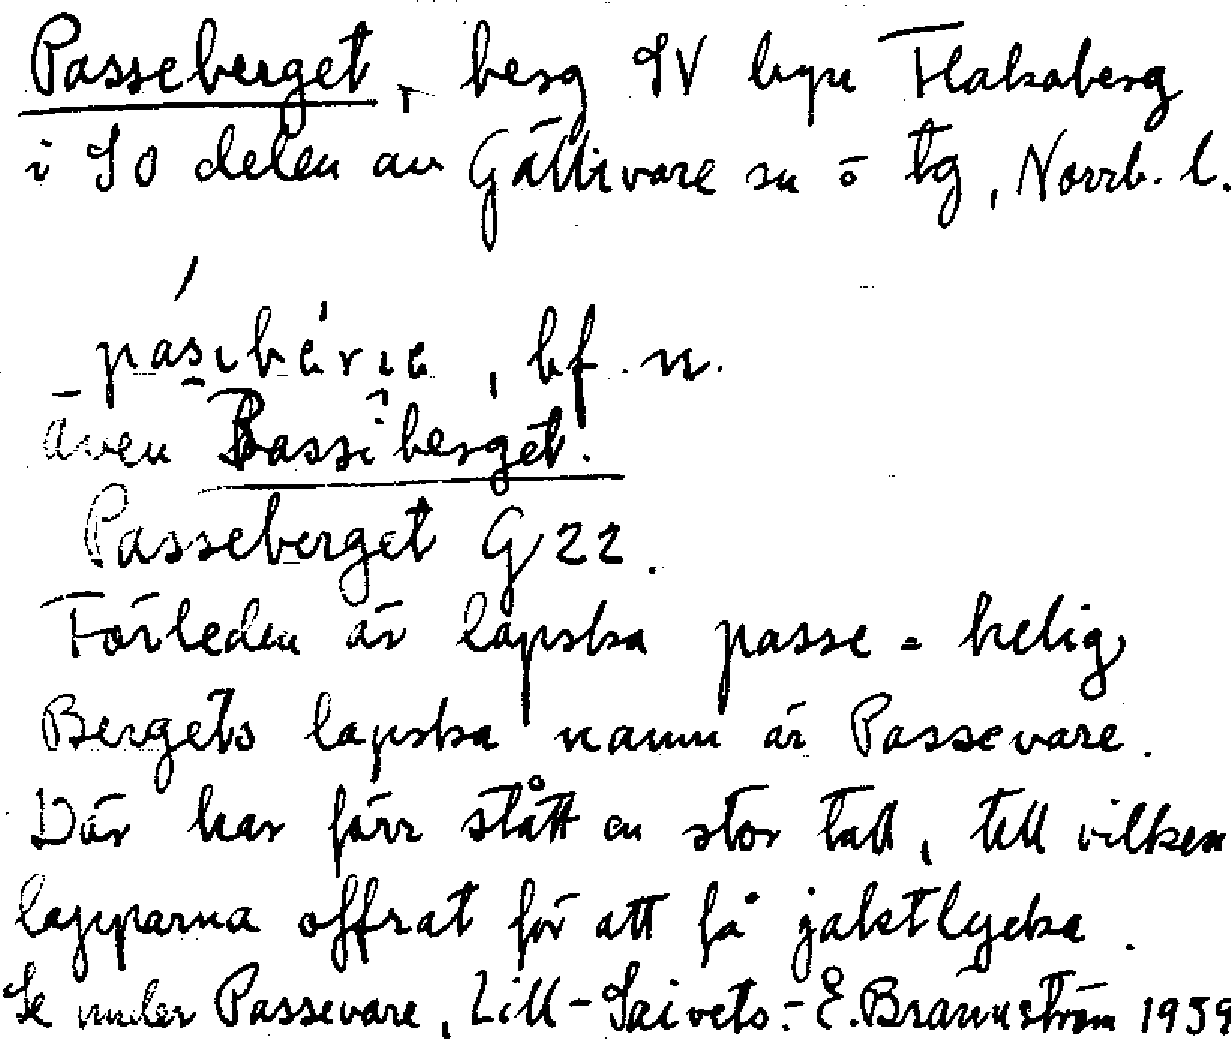 Passeberget, berg SV byn Flakaberg
i SO delen av Gällivare sn o tg, Norrb. l.
, bf. n.
även Passiberget.
Passeberget G 22.
Förleden är lapska passe = helig
Bergets lapska namn är Passevare.
Där har förr stått en stor tall, till vilken
lapparna offrat för att få jaktlycka.
Se under Passevare, Lill-Saivets.- E. Brännström 1959